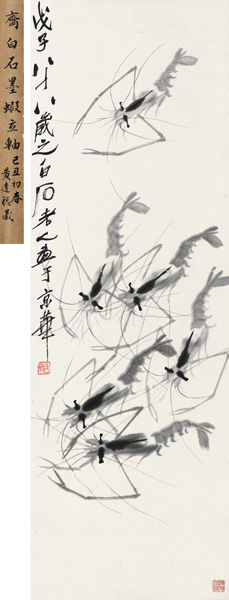 齊白石墨蝦立軸
己丑初春
黃達聰藏
戊子八十八歲之白石老人畫于京華